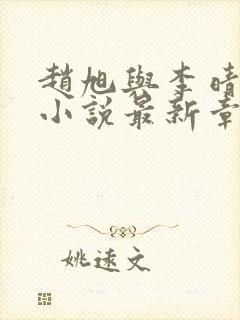 趙旭與李晴
小說最新章
姚遠文